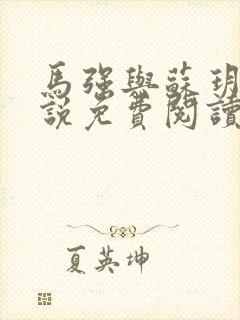 馬強與蘇玥
說免費閱讀
夏英坤